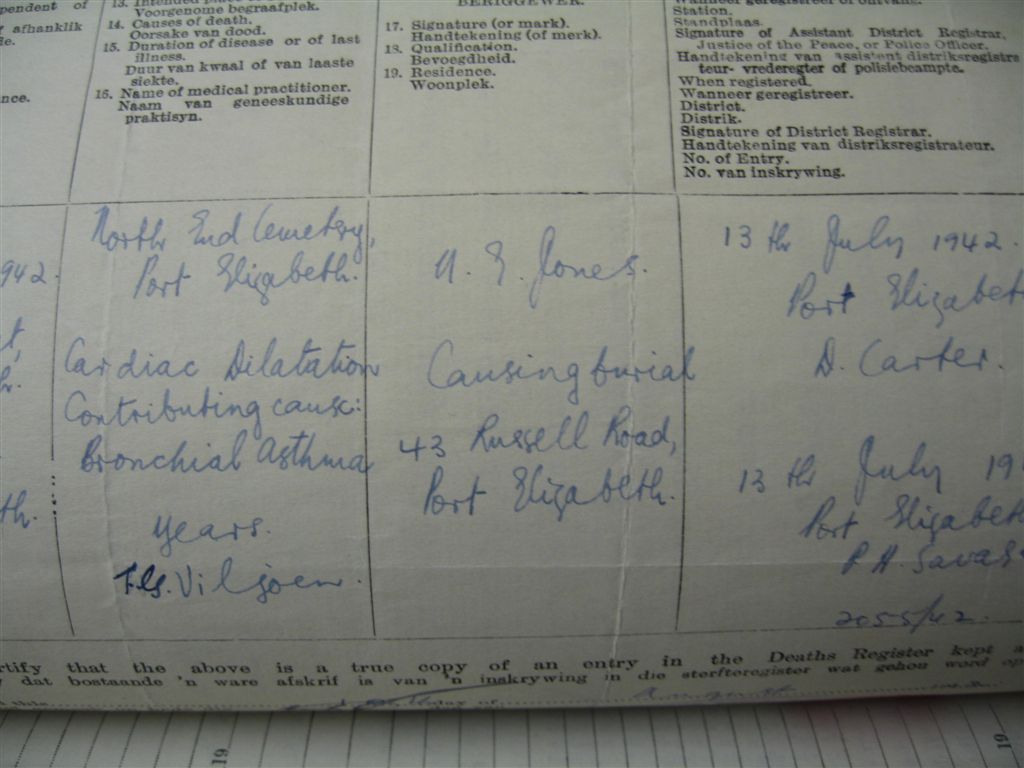 pendent of
afhanklik
nce.
13. Intended place of
Voorgenome begraafplek.
14. Causes of death.
Oorsake van dood.
15. Duration of disease or of last
illness.
Duur van kwaal of van laaste
siekte.
16. Name of medical practitioner.
Naam van geneeskundige
praktisyn.
BERIGGEWER.
17. Signature (or mark).
Handtekening (of merk).
18. Qualification.
Bevoegdheid.
19. Residence.
Woonplek.
Wanneer geregistreer of ontvang.
Station.
Standplaas.
Signature of Assistant District Registrar,
Justice of the Peace, or Police Officer.
Handtekening van assistent distriksregistra
teur- vrederegter of polisiebeampte.
When registered.
Wanneer geregistreer.
District.
Distrik.
Signature of District Registrar.
Handtekening van distriksregistrateur.
No. of Entry.
No. van inskrywing.
942.
th.
North End Cemetery,
Port Elizabeth.
Cardiac Dilatation
Contributing cause:
Bronchial Asthma
years.
Viljoen.
E. Jones.
Causing burial
43 Russell Road,
Port Elizabeth.
13 th July 1942.
Port Elizabet
D. Carter.
13 th July 19
Port Elizabeth
P. H. Savag
2055/42.
rtify that the above is a true copy of an entry in the Deaths Register kept a
dat bostaande 'n ware afskrif is van 'n inskrywing in die sterfteregister wat gehou word op
19
19